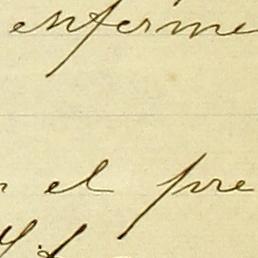 enferme
el pre